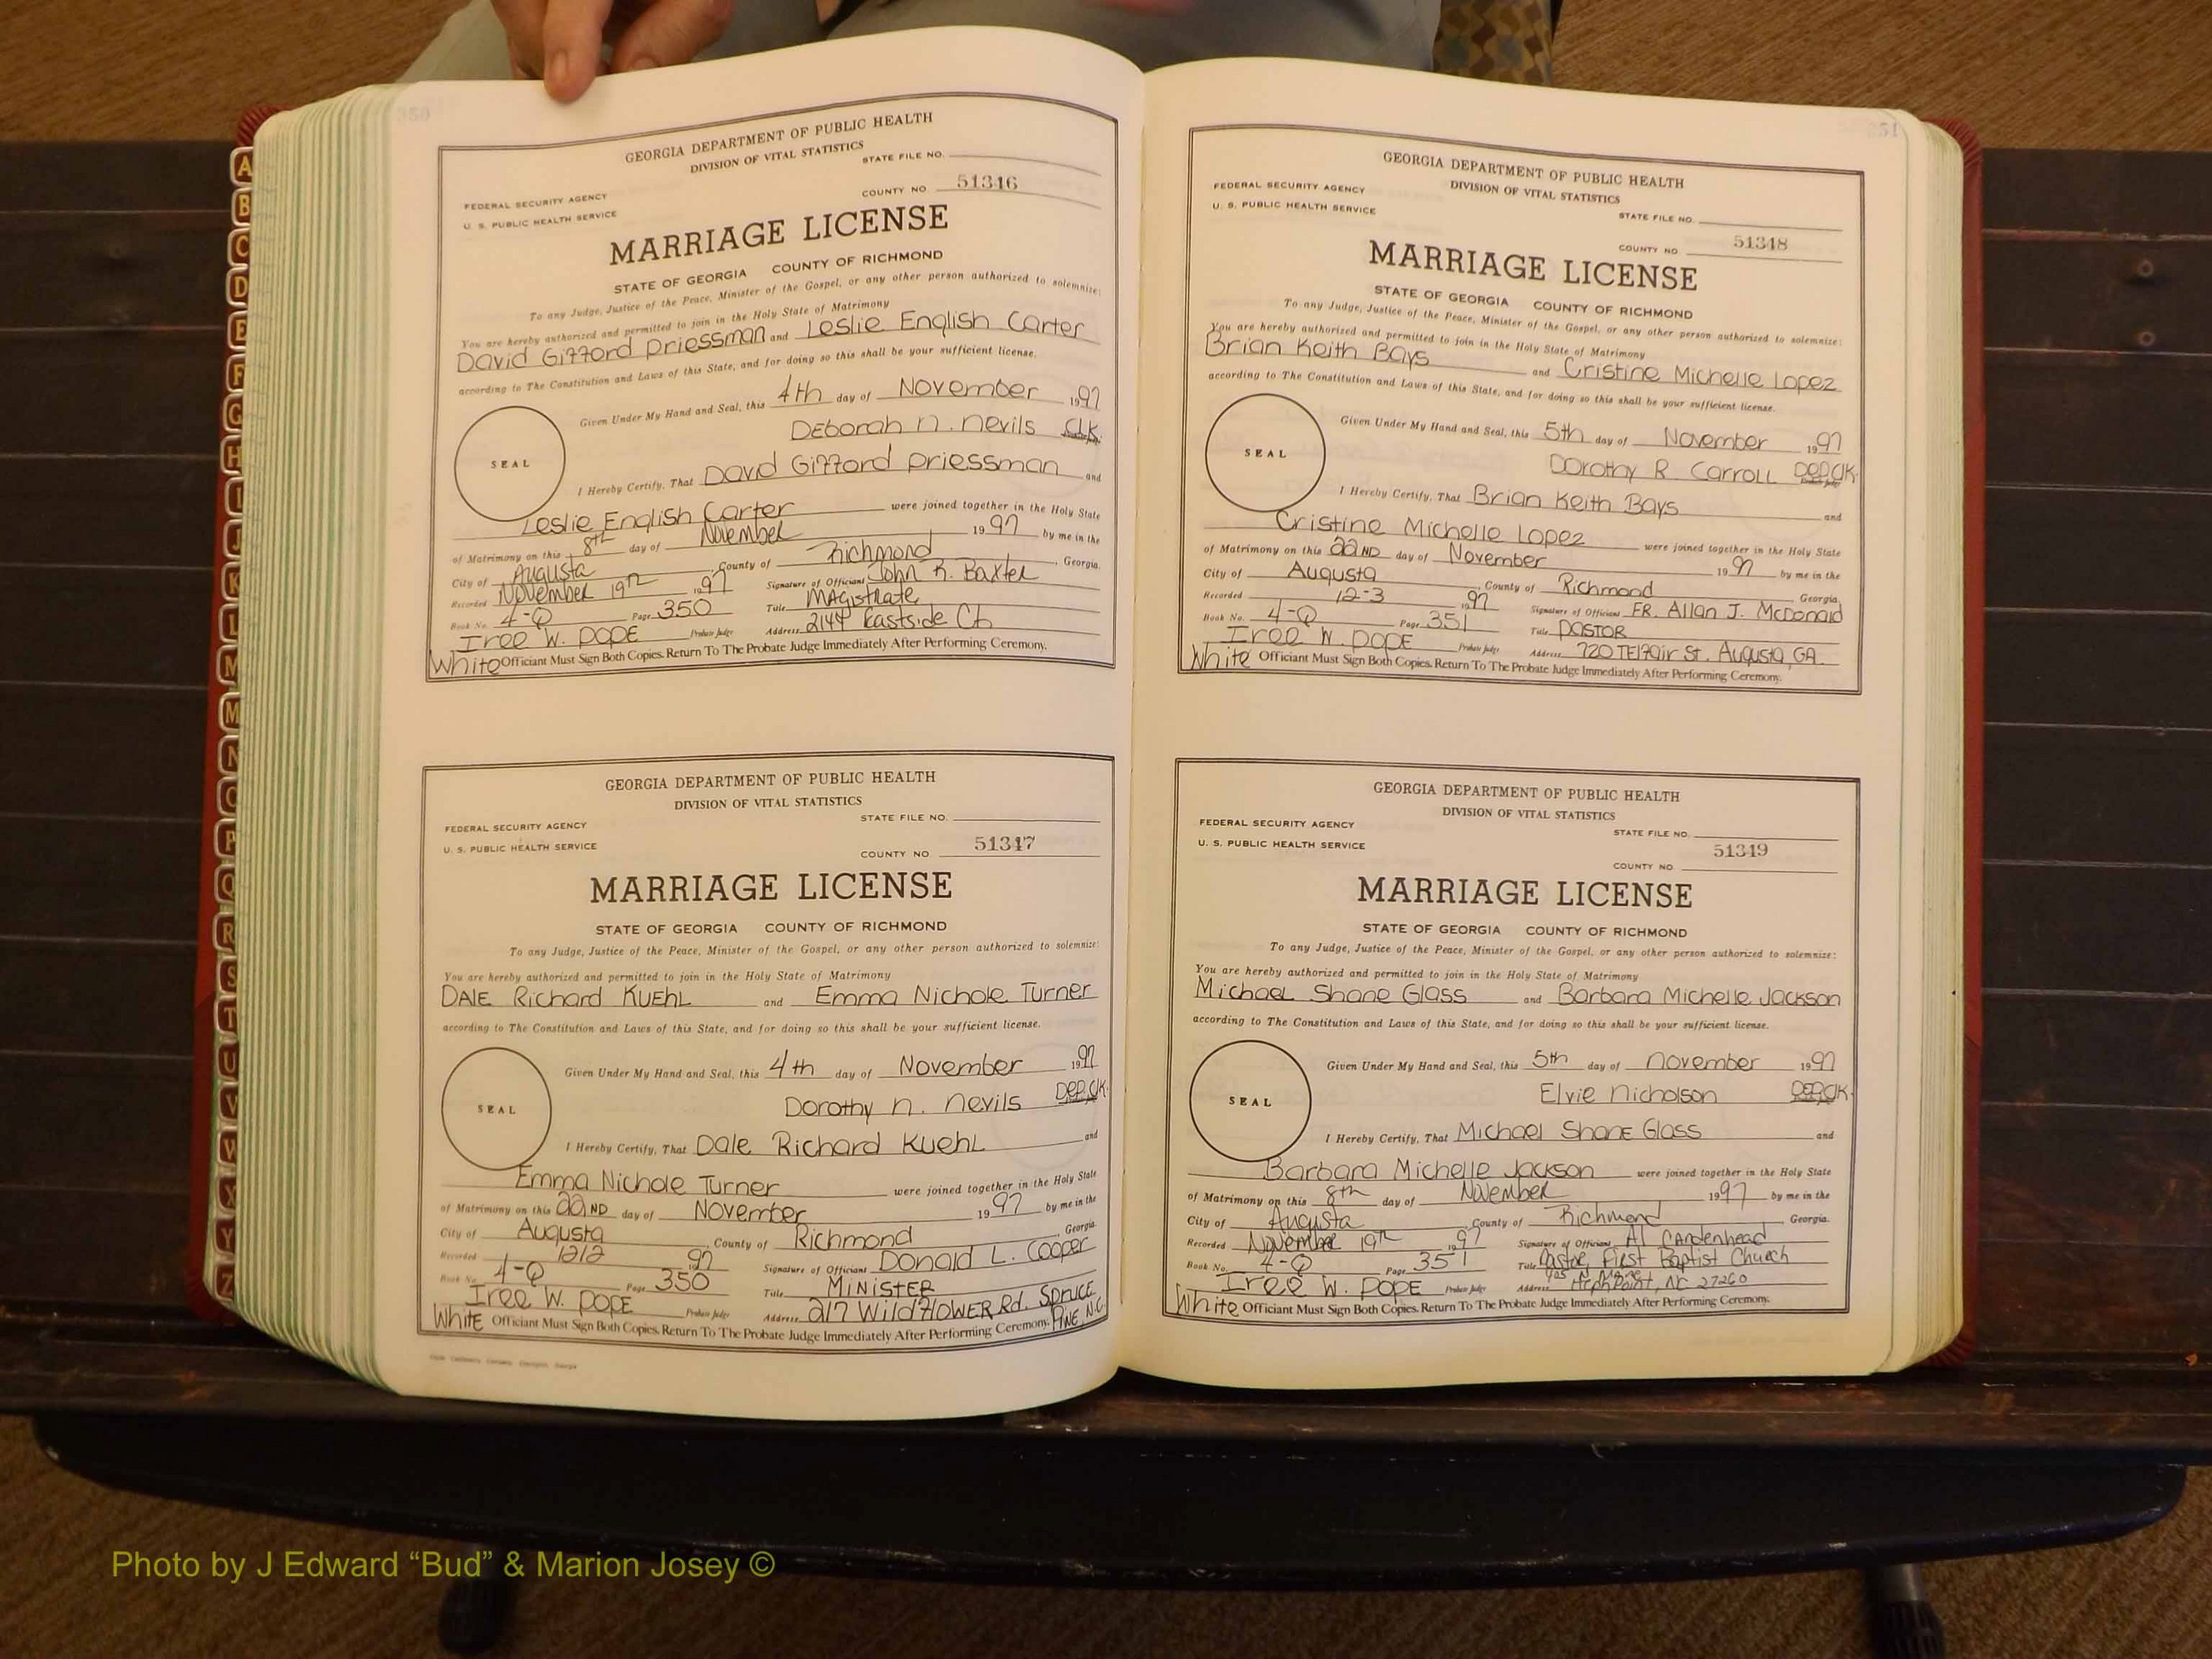 350
GEORGIA DEPARTMENT OF PUBLIC HEALTH
DIVISION OF VITAL STATISTICS
STATE FILE NO.
FEDERAL SECURITY AGENCY
COUNTY NO 51346
U. S. PUBLIC HEALTH SERVICE
MARRIAGE LICENSE
STATE OF GEORGIA COUNTY OF RICHMOND
To any Judge, Justice of the Peace, Minister of the Gospel, or any other person authorized to solemnize:
You are hereby authorized and permitted to join in the Holy State of Matrimony
David Gifford Priessman and Leslie English Carter
according to The Constitution and Laws of this State, and for doing so this shall be your sufficient license.
Given Under My Hand and Seal, this 4th day of November 1997
Deborah N. Nevils CLK.
SEAL
I Hereby Certify, That David Gifford Priessman and
Leslie English Carter were joined together in the Holy State
of Matrimony on this 8th day of November 1997 by me in the
City of Augusta, County of Richmond, Georgia.
Recorded November 19th 1997 Signature of Officiant John R. Baxter
Book No. 4-Q Page 350 Title Magistrate
Iree W. Pope Probate Judge Address 2144 Eastside Ct
White Officiant Must Sign Both Copies. Return To The Probate Judge Immediately After Performing Ceremony.
GEORGIA DEPARTMENT OF PUBLIC HEALTH
DIVISION OF VITAL STATISTICS
STATE FILE NO.
FEDERAL SECURITY AGENCY
U. S. PUBLIC HEALTH SERVICE
COUNTY NO 51347
MARRIAGE LICENSE
STATE OF GEORGIA COUNTY OF RICHMOND
To any Judge, Justice of the Peace, Minister of the Gospel, or any other person authorized to solemnize:
You are hereby authorized and permitted to join in the Holy State of Matrimony
Dale Richard Kuehl and Emma Nichole Turner
according to The Constitution and Laws of this State, and for doing so this shall be your sufficient license.
Given Under My Hand and Seal, this 4th day of November 1997
Dorothy N. Nevils DEP.CLK.
SEAL
I Hereby Certify, That Dale Richard Kuehl and
Emma Nichole Turner were joined together in the Holy State
of Matrimony on this 22ND day of November 1997 by me in the
City of Augusta, County of Richmond Georgia.
Recorded 12/2 1997 Signature of Officiant Donald L. Cooper
Book No. 4-Q Page 350 Title Minister
Iree W. Pope Probate Judge Address 217 Wildflower Rd. Spruce Pine N.C.
White Officiant Must Sign Both Copies. Return To The Probate Judge Immediately After Performing Ceremony.
351
GEORGIA DEPARTMENT OF PUBLIC HEALTH
DIVISION OF VITAL STATISTICS
FEDERAL SECURITY AGENCY
U. S. PUBLIC HEALTH SERVICE
STATE FILE NO.
COUNTY NO 51348
MARRIAGE LICENSE
STATE OF GEORGIA COUNTY OF RICHMOND
To any Judge, Justice of the Peace, Minister of the Gospel, or any other person authorized to solemnize:
You are hereby authorized and permitted to join in the Holy State of Matrimony
Brian Keith Bays and Cristine Michelle Lopez
according to The Constitution and Laws of this State, and for doing so this shall be your sufficient license.
Given Under My Hand and Seal, this 5th day of November 1997
Dorothy R. Carroll DEP.CLK.
SEAL
I Hereby Certify, That Brian Keith Bays and
Cristine Michelle Lopez were joined together in the Holy State
of Matrimony on this 22ND day of November 1997 by me in the
City of Augusta, County of Richmond Georgia.
Recorded 12-3 1997 Signature of Officiant FR. Allan J. McDonald
Book No. 4-Q Page 351 Title Pastor
Iree W. Pope Probate Judge Address 720 Telfair St. Augusta, GA
White Officiant Must Sign Both Copies. Return To The Probate Judge Immediately After Performing Ceremony.
GEORGIA DEPARTMENT OF PUBLIC HEALTH
DIVISION OF VITAL STATISTICS
FEDERAL SECURITY AGENCY
STATE FILE NO.
U. S. PUBLIC HEALTH SERVICE
COUNTY NO. 51349
MARRIAGE LICENSE
STATE OF GEORGIA COUNTY OF RICHMOND
To any Judge, Justice of the Peace, Minister of the Gospel, or any other person authorized to solemnize:
You are hereby authorized and permitted to join in the Holy State of Matrimony
Michael Shane Glass and Barbara Michelle Jackson
according to The Constitution and Laws of this State, and for doing so this shall be your sufficient license.
Given Under My Hand and Seal, this 5th day of November 1997
Elvie Nicholson DEP.CLK.
SEAL
I Hereby Certify, That Michael Shane Glass and
Barbara Michelle Jackson were joined together in the Holy State
of Matrimony on this 8th day of November 1997 by me in the
City of Augusta, County of Richmond, Georgia.
Recorded November 19th 1997 Signature of Officiant Al Cardenhead
Book No. 4-Q Page 351 Title Pastor, First Baptist Church
Iree W. Pope Probate Judge Address High Point, NC 27260
White Officiant Must Sign Both Copies. Return To The Probate Judge Immediately After Performing Ceremony.
A
B
C
D
E
F
G
H
I
J
K
L
M
M
N
O
P
Q
R
S
T
U
V
W
X
Y
Z
Photo by J Edward “Bud” & Marion Josey ©